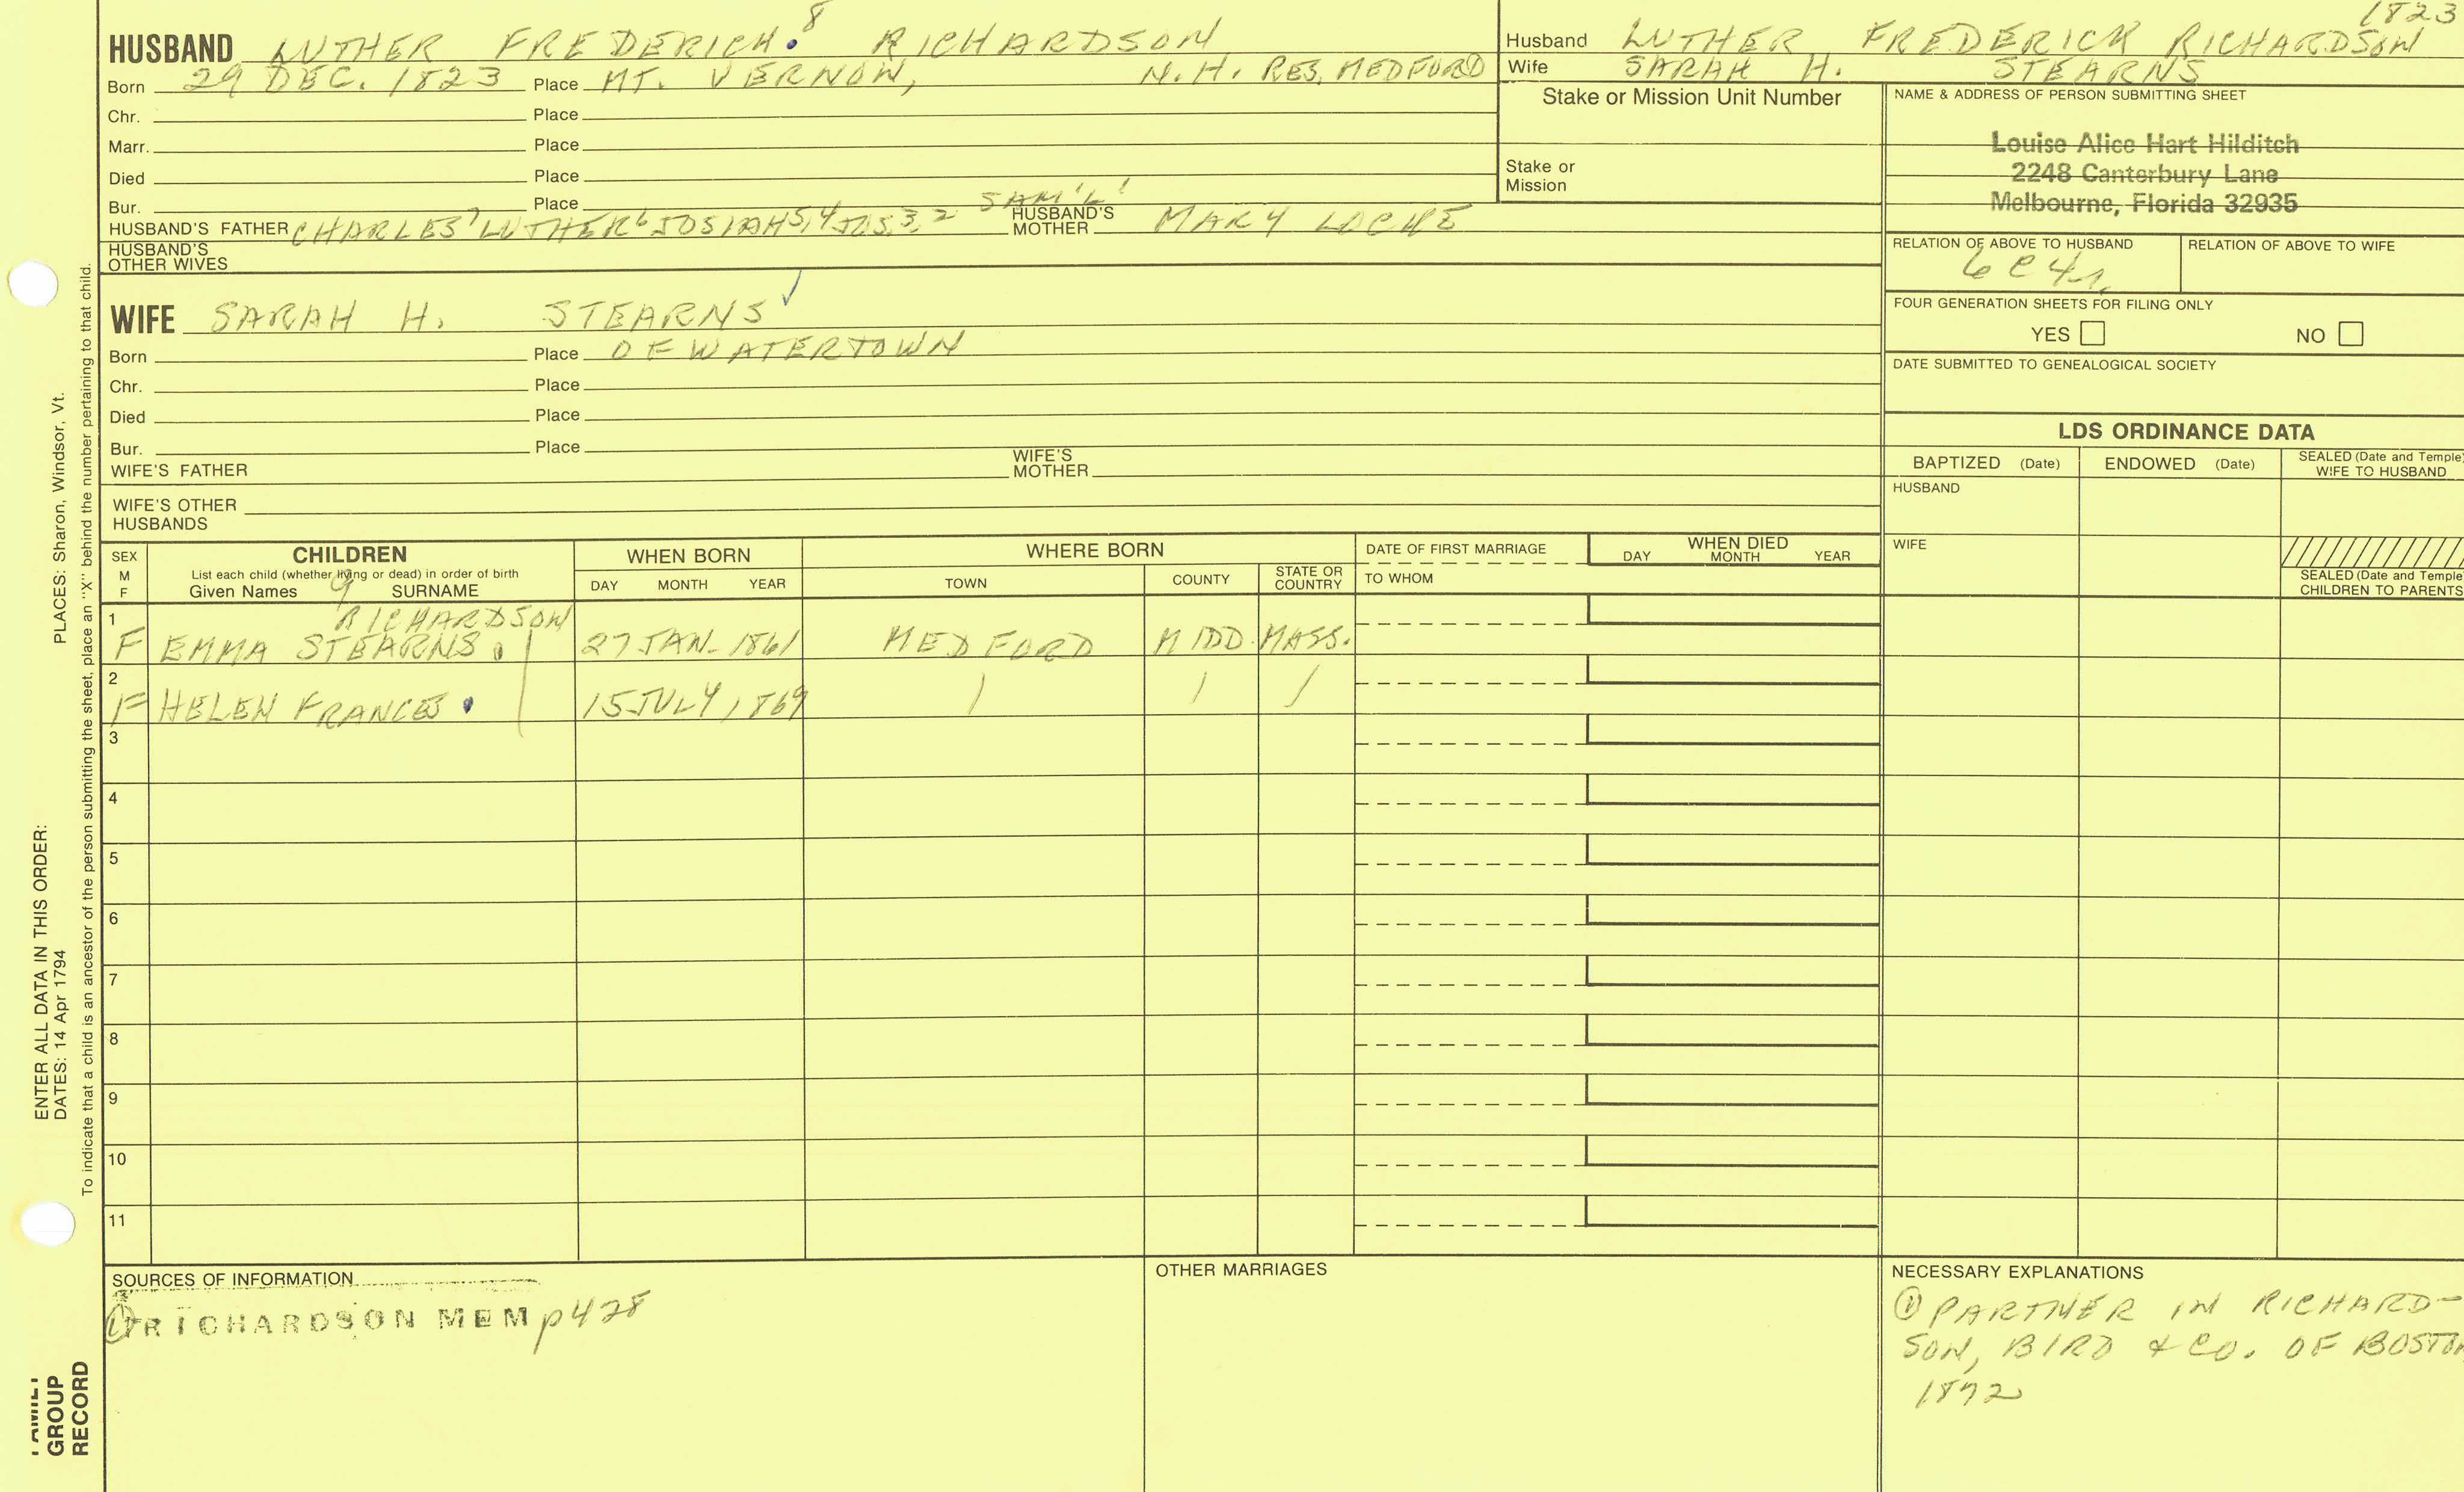 HUSBAND LUTHER FREDERICK.8 RICHARDSON
Born 29 DEC. 1823 Place MT. VERNON, N.H. RES, MEDFORD
Chr. Place
Marr. Place
Died Place
Bur. Place
HUSBAND'S FATHER CHARLES7 LUTHER6 JOSIAH5,4 JOS,3,2 SAM'L1 HUSBAND'S MOTHER MARY LOCKE
HUSBAND'S OTHER WIVES
WIFE SARAH H. STEARNS
Born Place OF WATERTOWN
Chr. Place
Died Place
Bur. Place
WIFE'S FATHER WIFE'S MOTHER
WIFE'S OTHER HUSBANDS
1823
Husband LUTHER FREDERICK RICHARDSON
Wife SARAH H. STEARNS
Stake or Mission Unit Number
Stake or Mission
NAME & ADDRESS OF PERSON SUBMITTING SHEET
Louise Alice Hart Hilditch
2248 Canterbury Lane
Melbourne, Florida 32935
RELATION OF ABOVE TO HUSBAND RELATION OF ABOVE TO WIFE
6C4r.
FOUR GENERATION SHEETS FOR FILING ONLY
YES NO
DATE SUBMITTED TO GENEALOGICAL SOCIETY
LDS ORDINANCE DATA
BAPTIZED (Date) ENDOWED (Date) SEALED (Date and Temple) WIFE TO HUSBAND
HUSBAND
WIFE
SEALED (Date and Temple) CHILDREN TO PARENTS
SEX M F
CHILDREN
List each child (whether living or dead) in order of birth
Given Names 9 SURNAME
WHEN BORN
DAY MONTH YEAR
WHERE BORN
TOWN COUNTY STATE OR COUNTRY
DATE OF FIRST MARRIAGE
TO WHOM
WHEN DIED
DAY MONTH YEAR
1 RICHARDSON
F EMMA STEARNS. 27 JAN. 1861 MEDFORD MIDD. MASS.
2
F HELEN FRANCES. 15 JULY, 1869 / / /
3
4
5
6
7
8
9
10
11
SOURCES OF INFORMATION
① RICHARDSON MEM p428
OTHER MARRIAGES
NECESSARY EXPLANATIONS
① PARTNER IN RICHARD-
SON, BIRD & CO. OF BOSTON
1872
PLACES: Sharon, Windsor, Vt.
ENTER ALL DATA IN THIS ORDER:
DATES: 14 Apr 1794
To indicate that a child is an ancestor of the person submitting the sheet, place an "X" behind the number pertaining to that child.
FAMILY
GROUP
RECORD